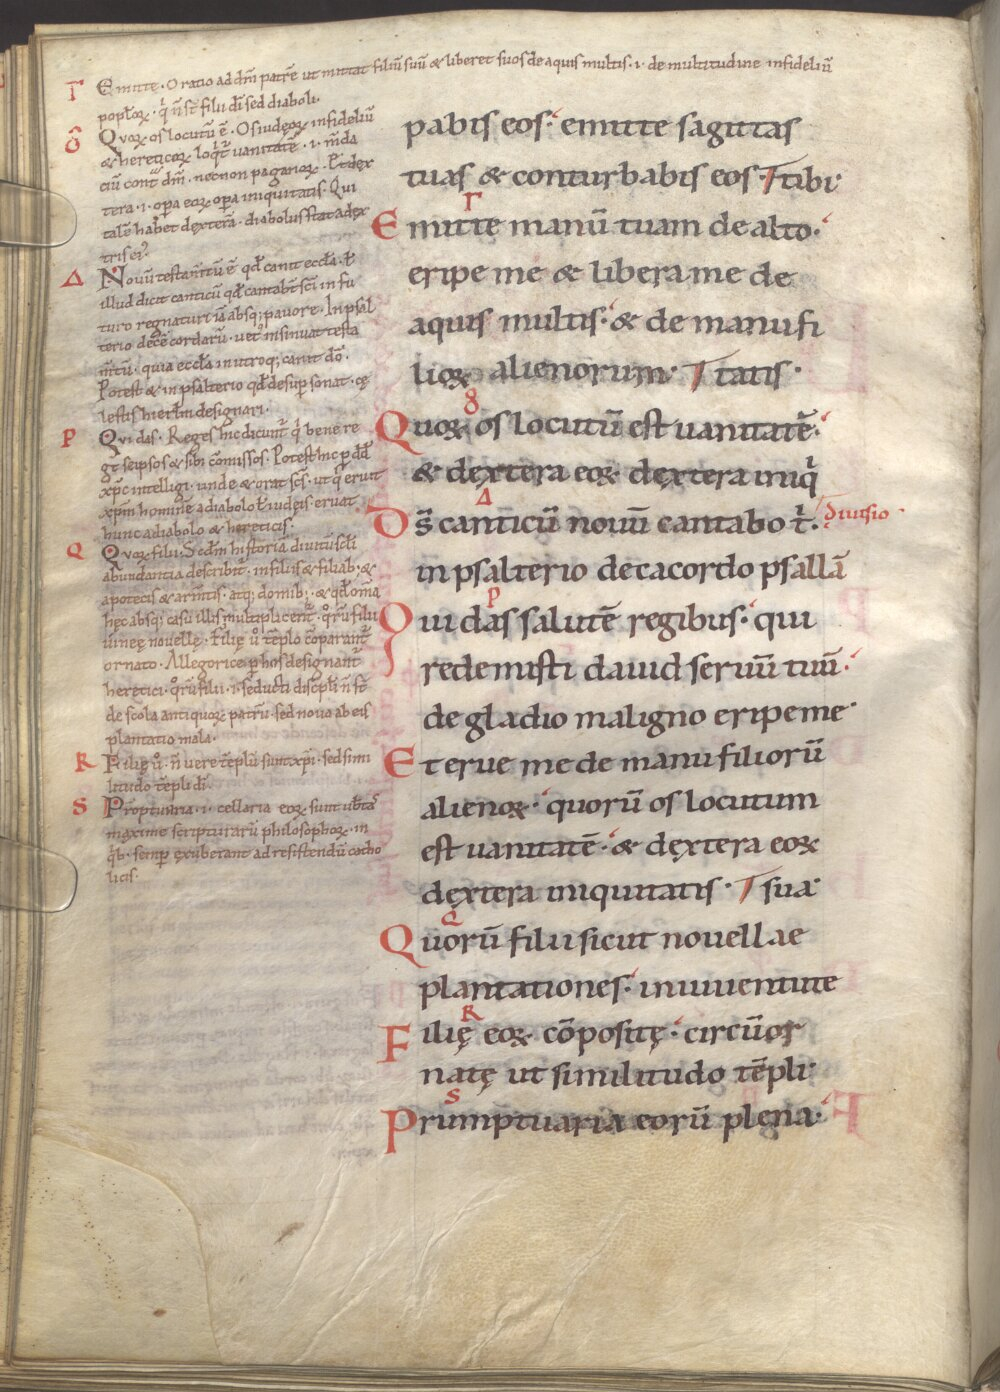 Γ Emitte · Oratio ad dm̄ patrē ut mittat filiū suū & liberet suos de aquis multis · i · de multitudine infideliū
poploꝝ · q' n̄ st̄ filii di sed diaboli ·
Quoꝝ os locutū ē · Os iudęoꝝ infideliū
& hereticoꝝ loq't̄ uanitatē · i · m̄da
ciū cont' dm̄ · necnon paganoꝝ · Et dex
tera · i · opa eoꝝ opa iniquitatis · Qui
talē habet dexterā · diabolus stat a dex
tris ei' ·
Δ Nouū testam̄tū ē qd̄ canit eccła · ł
illud dicit canticū qd̄ cantabt̄ sci in fu
turo regnaturi iā absq; pauore · In psal
terio decē cordarū · uet' insinuat testa
m̄tū · quia eccła in utroq; canit dō ·
Potest & in psalterio qd̄ desup sonat · cę
lestis hierłm designari ·
P Qui das · Reges hic dicunt' q' bene re
gt̄ seipsos & sibi cōmissos · Potest hic p dd̄
xpc intelligi · unde & orat scs̄ · ut q' eruit
xpm̄ hominē a diabolo ł iudeis · eruat
hunc a diabolo & hereticis ·
Q Quoꝝ filii · Scdm̄ historiā diuitū scłi
abundantia describit' · in filiis & filiab; &
apotecis & arm̄tis · atq; domib; · & qd̄ omā
hęc absq; casu illis multiplicent' · q'rū filii
uineę nouellę · filię u' tēplo cōparant'
ornato · Allegorice p hos designant'
heretici · q'rū filii · i · seducti discpli n̄ st̄
de scola antiquoꝝ patrū · sed noua ab eis
plantatio mala ·
R Filię u' · n̄ uere tēplū sunt xpi · sed simi
litudo tēpli di ·
S Proptuaria · i · cellaria eoꝝ sunt ubta'
maxime scripturarū philosophoꝝ · in
q'b; semp exuberant ad resistendū catho
licis ·
pabis eos · emitte sagittas
tuas & conturbabis eos · tibi ·
Emitte manū tuam de alto ·
eripe me & libera me de
aquis multis · & de manu fi
lioꝝ alienorum · tatis ·
Quoꝝ os locutū est uanitatē ·
& dextera eoꝝ dextera iniq'
Ds̄ canticū nouū cantabo t' · Diuisio ·
in psalterio decacordo psallā
Qui das salutē regibus · qui
redemisti dauid seruū tuū ·
de gladio maligno eripe me ·
Et erue me de manu filiorū
alienoꝝ · quorū os locutum
est uanitatē · & dextera eoꝝ
dextera iniquitatis · sua ·
Quorū filii sicut nouellae
plantationes · in iuuentute
Filię eoꝝ cōpositę · circūor
natę ut similitudo tēpli ·
Prumptuaria eorū plena ·